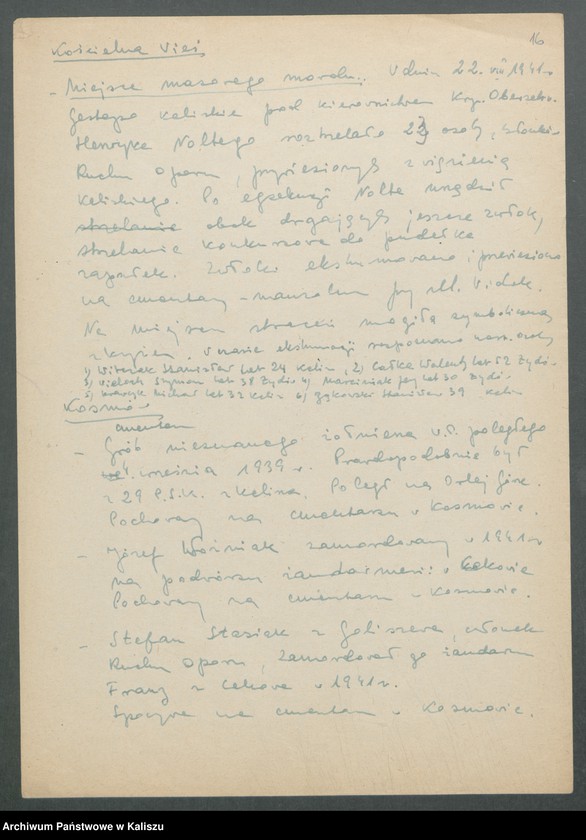 16
Kościelna Wieś
- Miejsce masowego mordu. W dniu 22. VIII 1941 r.
Gestapo kaliskie pod kierownictwem Krym. Obersekr.
Henryka Noltego rozstrzelało 23 osoby, członków
Ruchu Oporu, przywiezionych z więzienia
Kaliskiego. Po egzekucji Nolte urządził
strzelanie obok drgających jeszcze zwłok,
strzelanie konkursowe do pudełka
zapałek. Zwłoki ekshumowano i przewieziono
na cmentarz - mauzoleum przy ul. Widok.
Na miejscu straceń mogiła symboliczna
z krzyżem. W czasie ekshumacji rozpoznano nast. osoby
1) Witczak Stanisław lat 24 Kalisz, 2) Całka Walenty lat 52
3) Szymon lat 38 4) Marciniak lat 30
5) Michał lat 32 Kalisz 6) Stanisław 39 Kalisz
Kosmów
cmentarz
- Grób nieznanego żołnierza W.P. poległego
we wrześniu 1939 r. Prawdopodobnie był
z 29 P.S.K. z Kalisza. Poległ na Orlej Górze.
Pochowany na cmentarzu w Kosmowie.
- Józef Woźniak zamordowany w 1941 r.
na podwórzu żandarmerii w Cekowie
Pochowany na cmentarzu w Kosmowie.
- Stefan Stasiak z Goliszewa, członek
Ruchu Oporu, zamordował go żandarm
Franz z Cekowa w 1941 r.
Spoczywa na cmentarzu w Kosmowie.
Archiwum Państwowe w Kaliszu